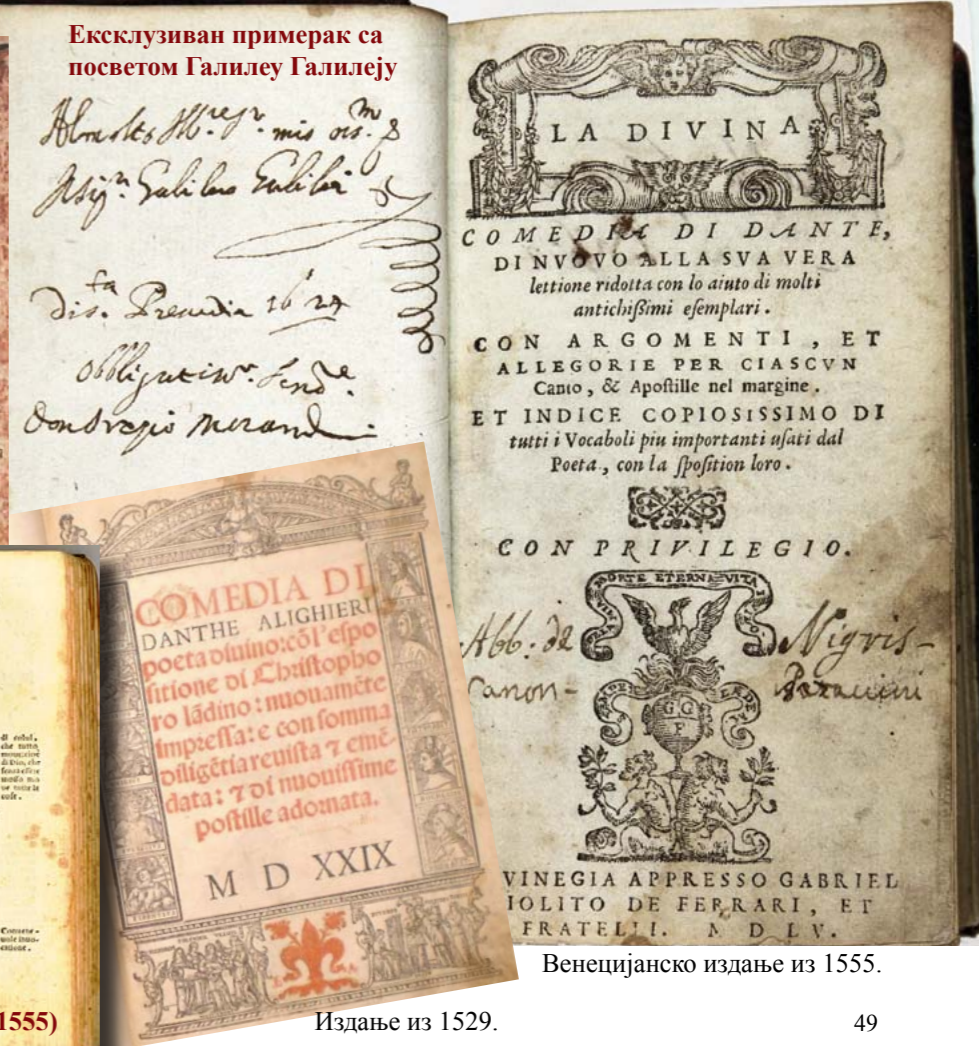 Ексклузиван примерак са
посветом Галилеу Галилеју
Galileo Galilei
1624
LA DIVINA
COMEDIA DI DANTE,
DI NVOVO ALLA SVA VERA
lettione ridotta con lo aiuto di molti
antichißimi eſemplari.
CON ARGOMENTI, ET
ALLEGORIE PER CIASCVN
Canto, & Apoſtille nel margine.
ET INDICE COPIOSISSIMO DI
tutti i Vocaboli piu importanti uſati dal
Poeta, con la ſpoſition loro.
CON PRIVILEGIO.
MORTE ETERNA VITA
Abb: de Nigris-
Canon-
G G
F
VINEGIA APPRESSO GABRIEL
IOLITO DE FERRARI, ET
FRATELLI. M D LV.
COMEDIA DI
DANTHE ALIGHIERI
poeta diuino: cõl'eſpo
ſitione di Chriſtopho
ro lãdino: nuouamẽte
impreſſa: e con ſomma
diligẽtia reuiſta ⁊ emẽ
data: ⁊ di nuouiſſime
poſtille adornata.
M D XXIX
Венецијанско издање из 1555.
1555)
Издање из 1529.
49